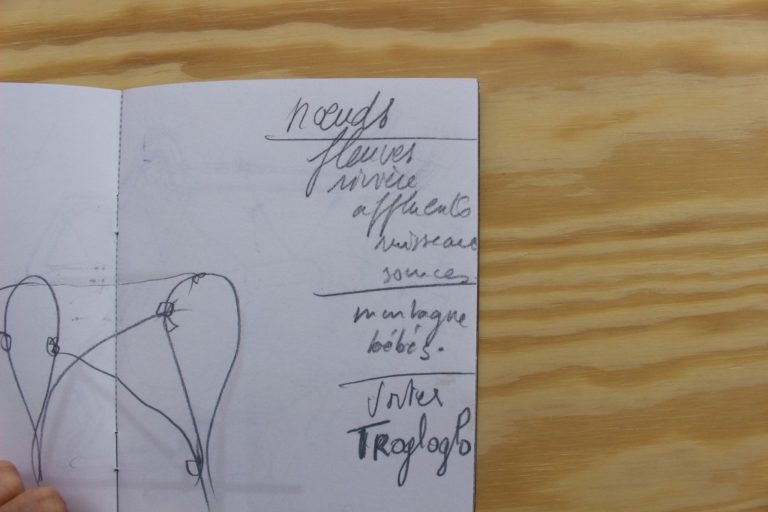 nœuds
fleuves
rivière
affluents
ruisseau
sources
montagne
bébés.
Trogloglo